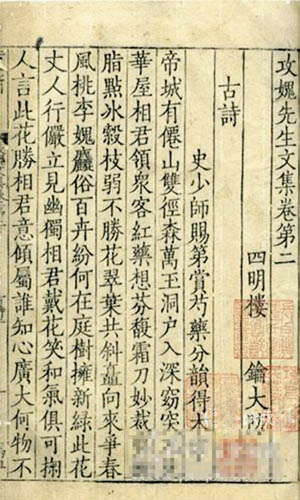 攻媿先生文集卷第二
四明樓 鑰大防
古詩
史少師賜第賞芍藥分韻得木
帝城有僊山雙徑森萬玉洞户入深窈突
華屋相君領衆客紅藥想芬馥霜刀妙裁
脂點冰縠枝弱不勝花翠葉共斜矗向來爭春
風桃李媿麤俗百卉紛何在庭樹擁新緑此花
丈人行儼立見幽獨相君戴花笑和氣俱可掬
人言此花勝相君意傾屬誰知心廣大何物不